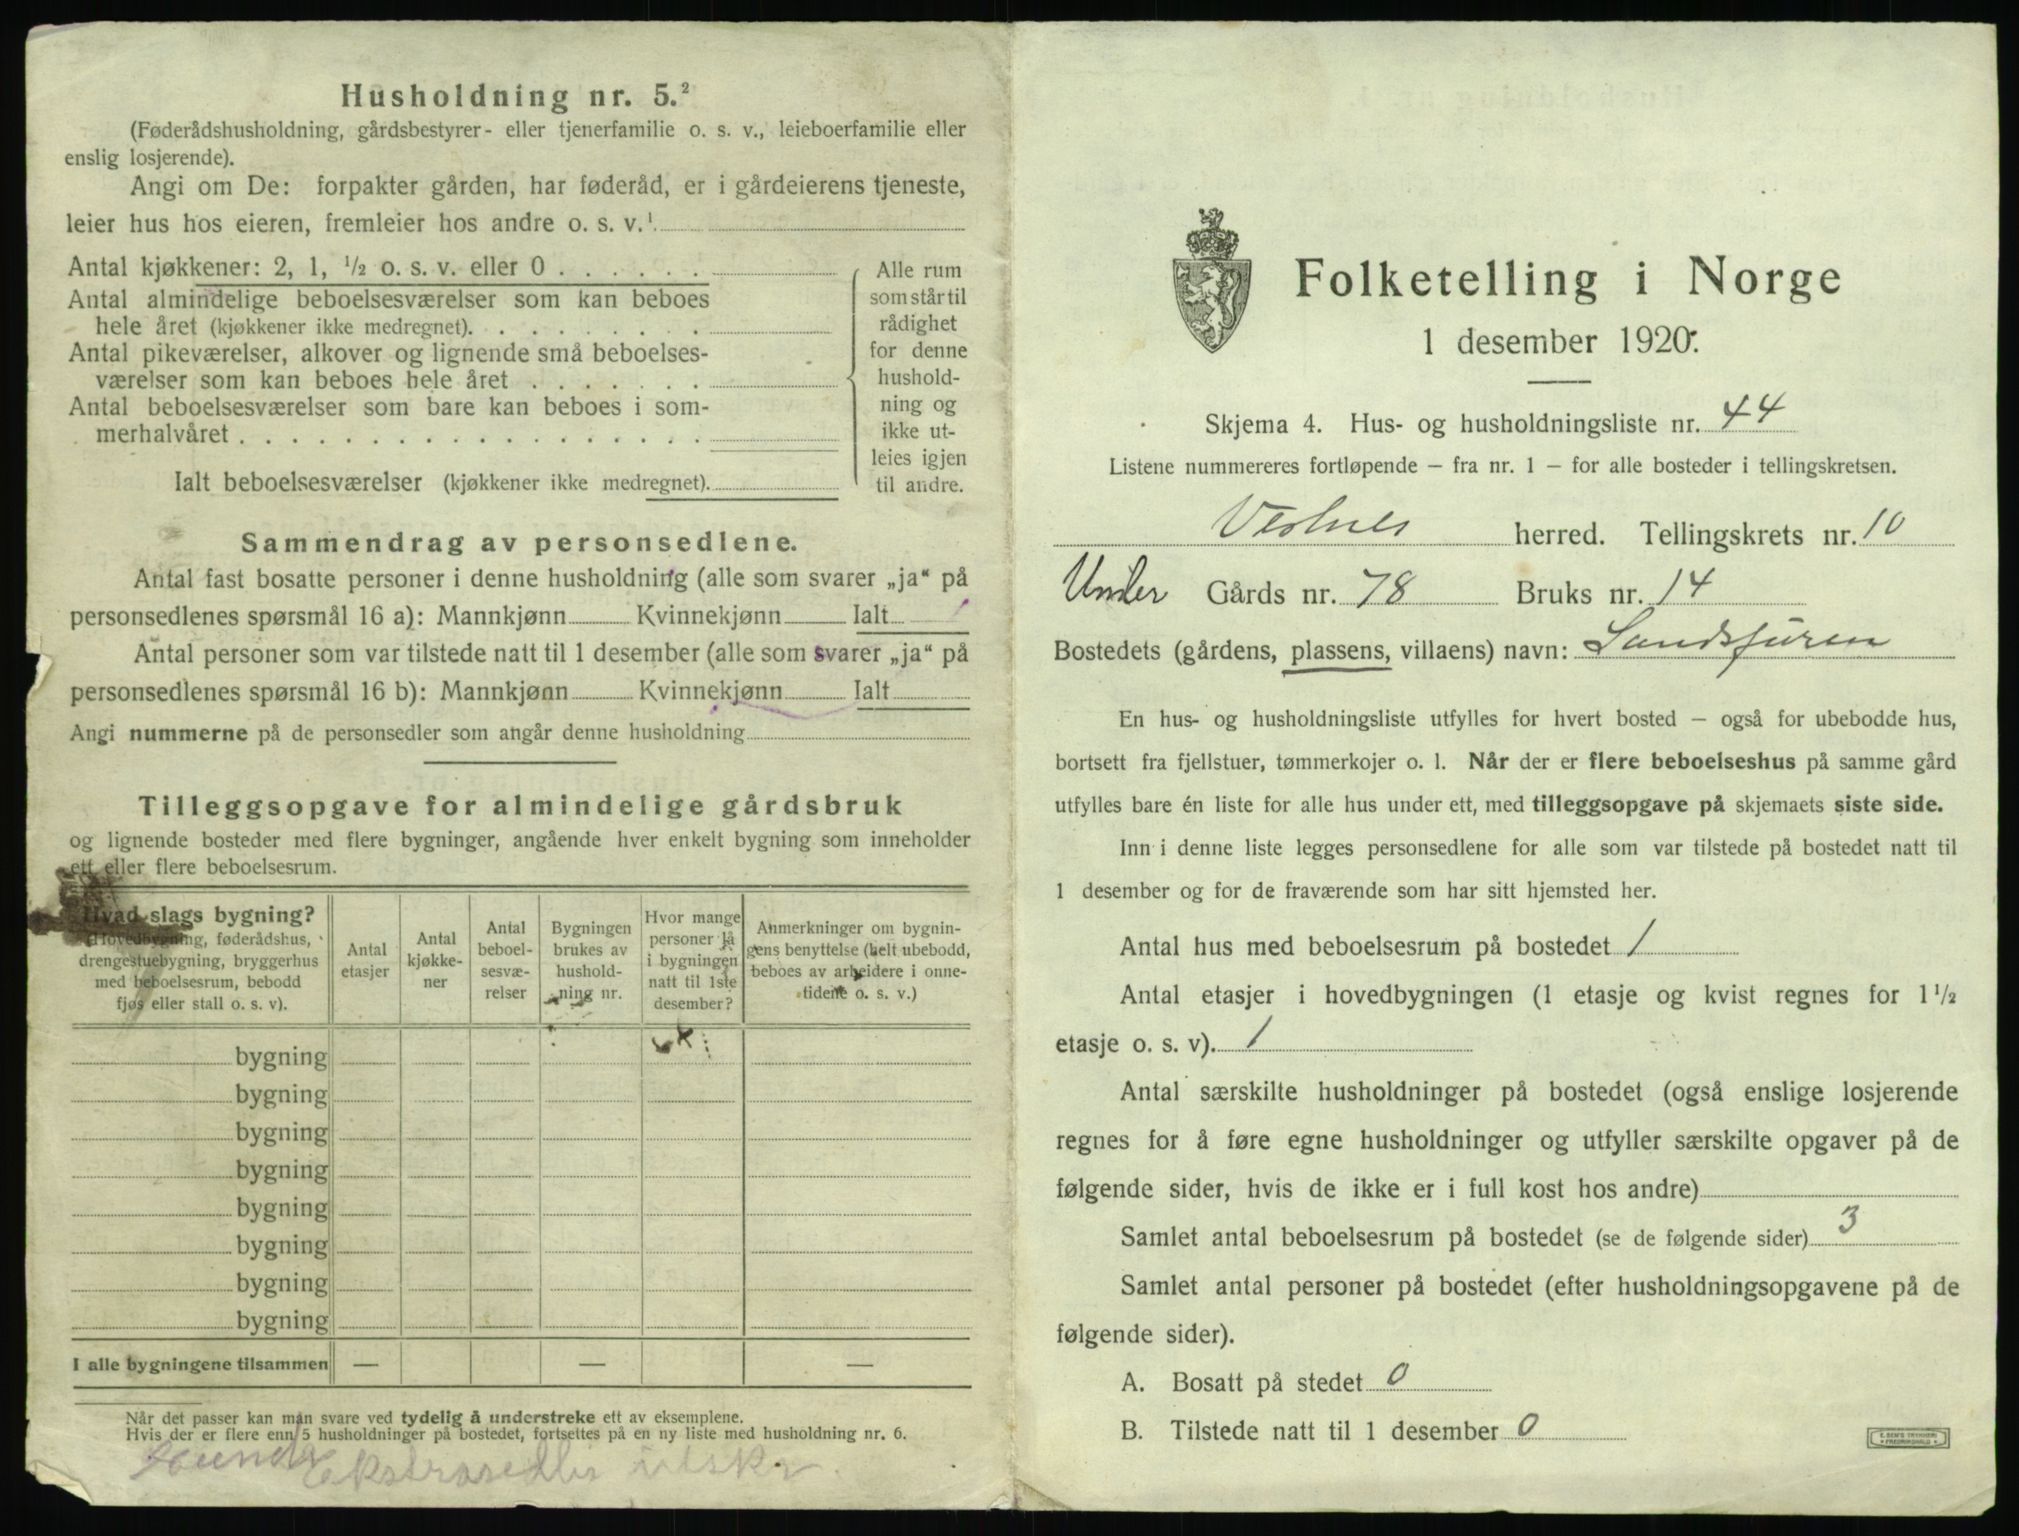 Husholdning nr. 5.²
(Føderådshusholdning, gårdsbestyrer- eller tjenerfamilie o. s. v., leieboerfamilie eller
enslig losjerende).
Angi om De: forpakter gården, har føderåd, er i gårdeierens tjeneste,
leier hus hos eieren, fremleier hos andre o. s. v.¹
Antal kjøkkener: 2, 1, ½ o. s. v. eller 0 . . . . . .
Antal almindelige beboelsesværelser som kan beboes
hele året (kjøkkener ikke medregnet). . . . . . . . .
Antal pikeværelser, alkover og lignende små beboelses-
værelser som kan beboes hele året . . . . . . .
Antal beboelsesværelser som bare kan beboes i som-
merhalvåret . . . . . . . . . . . . . . . . . .
Ialt beboelsesværelser (kjøkkener ikke medregnet).
Alle rum
som står til
rådighet
for denne
hushold-
ning og
ikke ut-
leies igjen
til andre.
Sammendrag av personsedlene.
Antal fast bosatte personer i denne husholdning (alle som svarer „ja“ på
personsedlenes spørsmål 16 a): Mannkjønn Kvinnekjønn Ialt
Antal personer som var tilstede natt til 1 desember (alle som svarer „ja“ på
personsedlenes spørsmål 16 b): Mannkjønn Kvinnekjønn Ialt
Angi nummerne på de personsedler som angår denne husholdning
Tilleggsopgave for almindelige gårdsbruk
og lignende bosteder med flere bygninger, angående hver enkelt bygning som inneholder
ett eller flere beboelsesrum.
Hvad slags bygning?
(Hovedbygning, føderådshus,
drengestuebygning, bryggerhus
med beboelsesrum, bebodd
fjøs eller stall o. s. v).
Antal
etasjer
Antal
kjøkke-
ner
Antal
beboel-
sesvæ-
relser
Bygningen
brukes av
hushold-
ning nr.
Hvor mange
personer lå
i bygningen
natt til 1ste
desember?
Anmerkninger om bygnin-
gens benyttelse (helt ubebodd,
beboes av arbeidere i onne-
tidene o. s. v.)
bygning
bygning
bygning
bygning
bygning
bygning
bygning
bygning
I alle bygningene tilsammen — — —
Når det passer kan man svare ved tydelig å understreke ett av eksemplene.
Hvis der er flere enn 5 husholdninger på bostedet, fortsettes på en ny liste med husholdning nr. 6.
Ekstrasedler utskr.
Folketelling i Norge
1 desember 1920.
Skjema 4. Hus- og husholdningsliste nr. 44
Listene nummereres fortløpende – fra nr. 1 – for alle bosteder i tellingskretsen.
Vestnes herred. Tellingskrets nr. 10
Under Gårds nr. 78 Bruks nr. 14
Bostedets (gårdens, plassens, villaens) navn: Sandsfuren
En hus- og husholdningsliste utfylles for hvert bosted – også for ubebodde hus,
bortsett fra fjellstuer, tømmerkojer o. l. Når der er flere beboelseshus på samme gård
utfylles bare én liste for alle hus under ett, med tilleggsopgave på skjemaets siste side.
Inn i denne liste legges personsedlene for alle som var tilstede på bostedet natt til
1 desember og for de fraværende som har sitt hjemsted her.
Antal hus med beboelsesrum på bostedet 1
Antal etasjer i hovedbygningen (1 etasje og kvist regnes for 1½
etasje o. s. v). 1
Antal særskilte husholdninger på bostedet (også enslige losjerende
regnes for å føre egne husholdninger og utfyller særskilte opgaver på de
følgende sider, hvis de ikke er i full kost hos andre)
Samlet antal beboelsesrum på bostedet (se de følgende sider) 3
Samlet antal personer på bostedet (efter husholdningsopgavene på de
følgende sider).
A. Bosatt på stedet 0
B. Tilstede natt til 1 desember 0